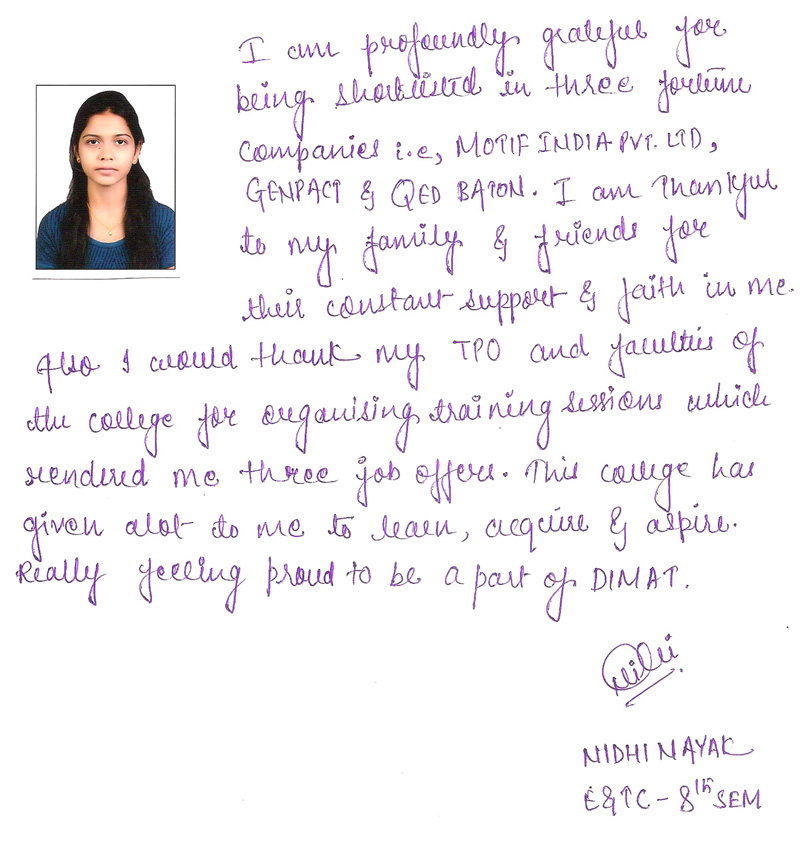 I am profoundly grateful for
being shortlisted in three fortune
companies i.e, MOTIF INDIA PVT. LTD,
GENPACT & QED BATON. I am thankful
to my family & friends for
their constant support & faith in me.
Also I would thank my TPO and faculties of
the college for organising training sessions which
rendered me three job offers. This college has
given alot to me to learn, acquire & aspire.
Really feeling proud to be a part of DIMAT.
Nidhi
NIDHI NAYAK
E&TC - 8th SEM